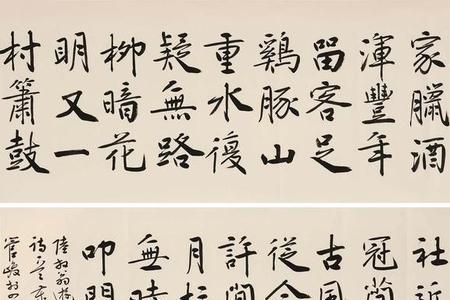 家臘酒
渾豐年
留客足
鷄豚山
重水復
疑無路
柳暗花
明又一
村簫鼓
社近
冠簡
古風
從今
許閒
月拄
無時
叩門
陸放翁遊
詩
管峻